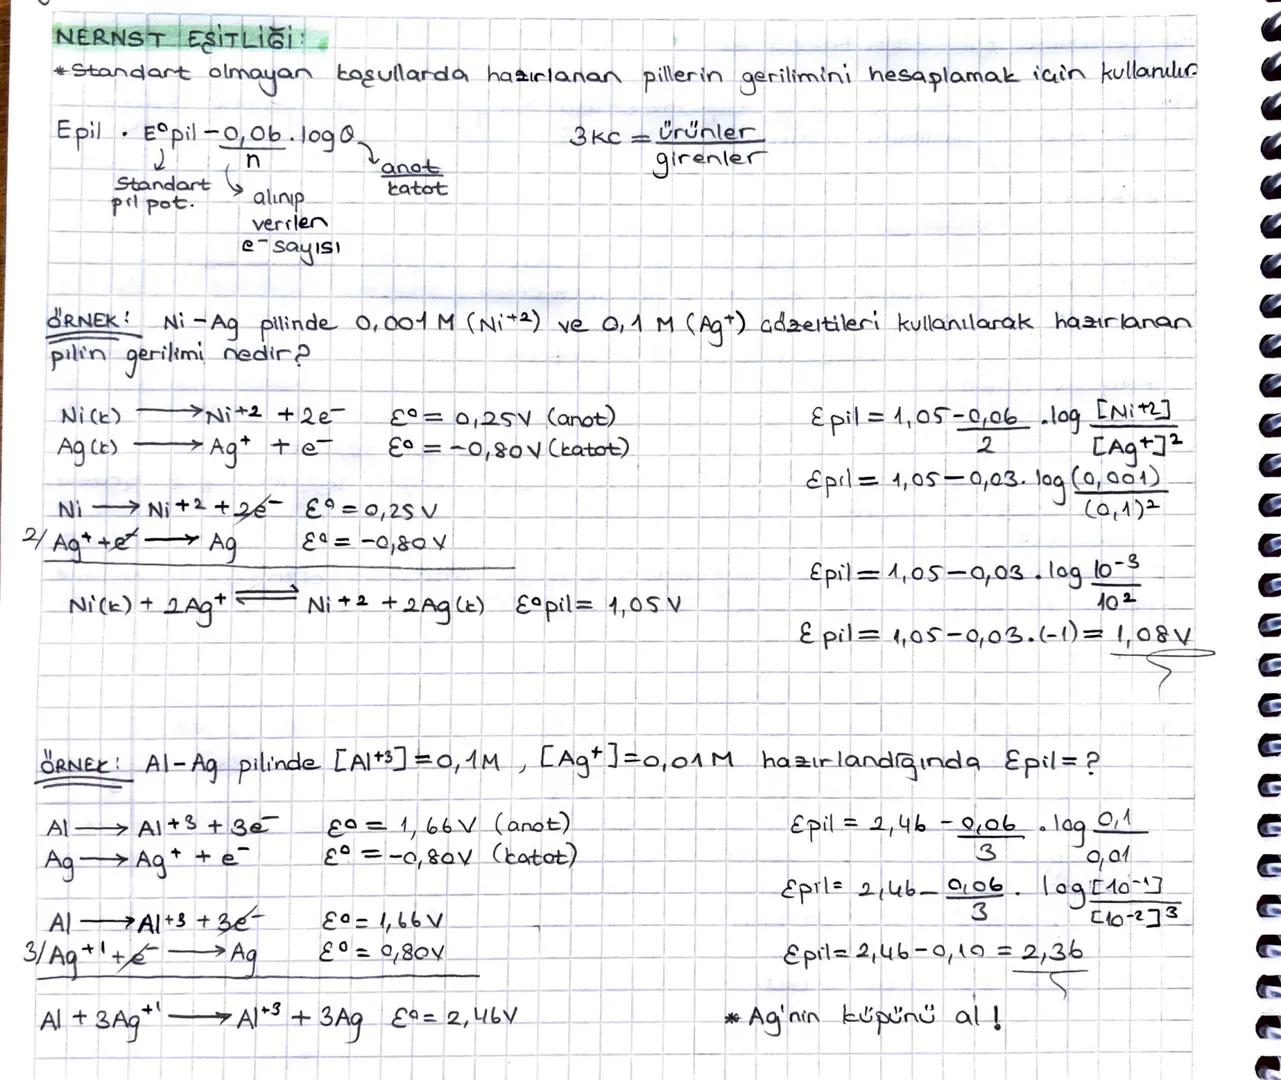 NERNST EŞİTLİĞİ:
*Standart olmayan koşullarda hazırlanan pillerin gerilimini hesaplamak için kullanılır.
Epil . E°pil - 0,06/n . log Q → anot/katot
↓ Standart pil pot.
↳ alınıp verilen e⁻ sayısı
3KC = ürünler/girenler
ÖRNEK: Ni-Ag pilinde 0,001 M (Ni+2) ve 0,1 M (Ag+) çözeltileri kullanılarak hazırlanan
pilin gerilimi nedir?
Ni(k) → Ni+2 + 2e⁻ Ɛ° = 0,25V (anot)
Ag(k) → Ag+ + e⁻ Ɛ° = -0,80V (katot)
Ni → Ni+2 + 2e⁻ Ɛ° = 0,25 V
2/ Ag+ + e⁻ → Ag Ɛ° = -0,80 V
Ni(k) + 2Ag+ ⇌ Ni+2 + 2Ag(k) Ɛ°pil = 1,05 V
Ɛpil = 1,05 - 0,06/2 . log [Ni+2]/[Ag+]²
Ɛpil = 1,05 - 0,03. log (0,001)/(0,1)²
Ɛpil = 1,05 - 0,03 . log 10⁻³/10²
Ɛpil = 1,05 - 0,03.(-1) = 1,08V
ÖRNEK: Al-Ag pilinde [Al+3] = 0,1M , [Ag+] = 0,01M hazırlandığında Ɛpil = ?
Al → Al+3 + 3e⁻ Ɛ° = 1,66V (anot)
Ag → Ag+ + e⁻ Ɛ° = -0,80V (katot)
Al → Al+3 + 3e⁻ Ɛ° = 1,66V
3/ Ag+1 + e⁻ → Ag Ɛ° = 0,80V
Al + 3Ag+1 → Al+3 + 3Ag Ɛ° = 2,46V
Ɛpil = 2,46 - 0,06/3 . log 0,1/0,01
Ɛpil = 2,46 - 0,06/3 . log [10⁻¹]/[10⁻²]³
Ɛpil = 2,46 - 0,10 = 2,36
* Ag'nin küpünü al!